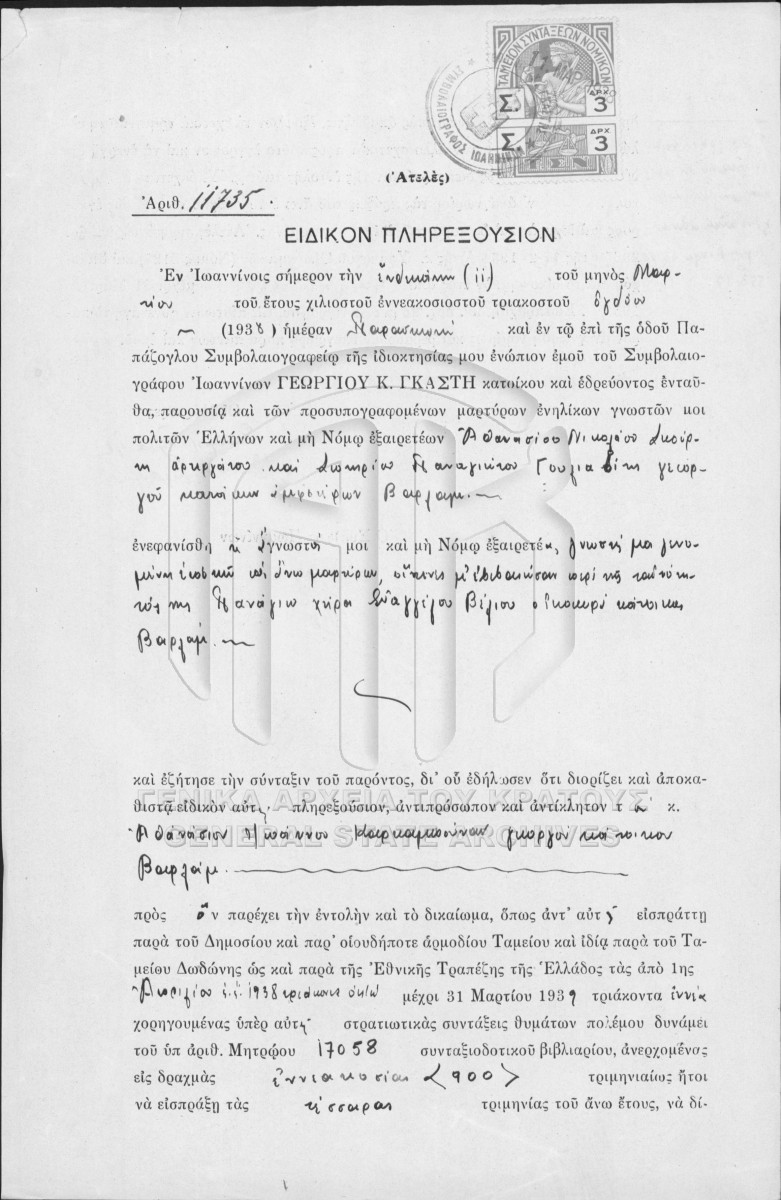 ΤΑΜΕΙΟΝ ΣΥΝΤΑΞΕΩΝ ΝΟΜΙΚΩΝ
Σ. ΔΡΧ. 3
Σ. ΔΡΧ. 3
ΣΥΜΒΟΛΑΙΟΓΡΑΦΟΣ ΙΩΑΝΝΙΝΩΝ
(Ἀτελὲς)
Ἀριθ. 11735.
ΕΙΔΙΚΟΝ ΠΛΗΡΕΞΟΥΣΙΟΝ
Ἐν Ἰωαννίνοις σήμερον τὴν ἑνδεκάτην (11) τοῦ μηνὸς Μαρ-
τίου τοῦ ἔτους χιλιοστοῦ ἐννεακοσιοστοῦ τριακοστοῦ ὀγδόου
(1938) ἡμέραν Παρασκευὴ καὶ ἐν τῷ ἐπὶ τῆς ὁδοῦ Πα-
πάζογλου Συμβολαιογραφείῳ τῆς ἰδιοκτησίας μου ἐνώπιον ἐμοῦ τοῦ Συμβολαιο-
γράφου Ἰωαννίνων ΓΕΩΡΓΙΟΥ Κ. ΓΚΑΣΤΗ κατοίκου καὶ ἑδρεύοντος ἐνταῦ-
θα, παρουσίᾳ καὶ τῶν προσυπογραφομένων μαρτύρων ἐνηλίκων γνωστῶν μοι
πολιτῶν Ἑλλήνων καὶ μὴ Νόμῳ ἐξαιρετέων Ἀθανασίου Νικολάου
καὶ Σωτηρίου Παναγιώτου γεωρ-
γοῦ κατοίκων ἀμφοτέρων Βαρλαάμ.
ἐνεφανίσθη ἡ ἄγνωστός μοι καὶ μὴ Νόμῳ ἐξαιρετέα, γνωστή μοι γενο-
μένη ἐκ τῶν ἄνω μαρτύρων, οἵτινες μ' ἐβεβαίωσαν περὶ τῆς ταυτότη-
τός της Παναγιὼ χήρα Εὐαγγέλου Βέλιου οἰκοκυρὰ κάτοικος
Βαρλαάμ.
καὶ ἐζήτησε τὴν σύνταξιν τοῦ παρόντος, δι' οὗ ἐδήλωσεν ὅτι διορίζει καὶ ἀποκα-
θιστᾷ εἰδικὸν αὐτῆς πληρεξούσιον, ἀντιπρόσωπον καὶ ἀντίκλητον τὸν κ.
ΓΕΝΙΚΑ ΑΡΧΕΙΑ ΤΟΥ ΚΡΑΤΟΥΣ
GENERAL STATE ARCHIVES
Ἀθανάσιον Ἰωάννου γεωργὸν κάτοικον
Βαρλαάμ.
πρὸς ὃν παρέχει τὴν ἐντολὴν καὶ τὸ δικαίωμα, ὅπως ἀντ' αὐτῆς εἰσπράττῃ
παρὰ τοῦ Δημοσίου καὶ παρ' οἱουδήποτε ἁρμοδίου Ταμείου καὶ ἰδίᾳ παρὰ τοῦ Τα-
μείου Δωδώνης ὡς καὶ παρὰ τῆς Ἐθνικῆς Τραπέζης τῆς Ἑλλάδος τὰς ἀπὸ 1ης
Ἀπριλίου ἐ.ἔ. 1938 τριάκοντα ὀκτὼ μέχρι 31 Μαρτίου 1939 τριάκοντα ἐννέα
χορηγουμένας ὑπὲρ αὐτῆς στρατιωτικὰς συντάξεις θυμάτων πολέμου δυνάμει
τοῦ ὑπ ἀριθ. Μητρῴου 17058 συνταξιοδοτικοῦ βιβλιαρίου, ἀνερχομένας
εἰς δραχμὰς ἐννιακοσίας (900) τριμηνιαίως ἤτοι
νὰ εἰσπράξῃ τὰς τέσσαρας τριμηνίας τοῦ ἄνω ἔτους, νὰ δί-